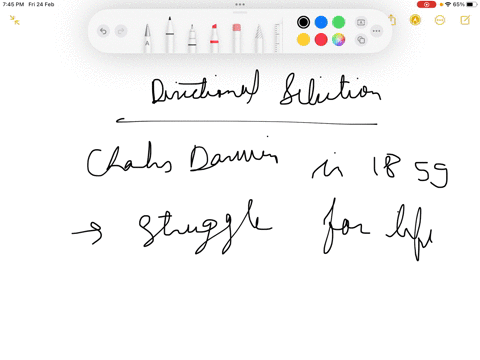 7:45 PM Fri 24 Feb
65%
Directional Selection
Charles Darwin in 1859
→ struggle for life